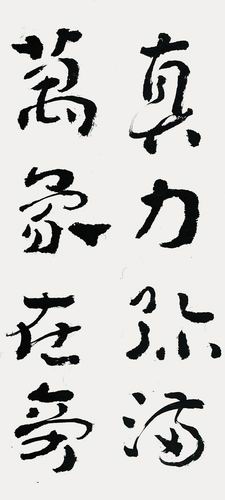 真力弥满
萬象在旁